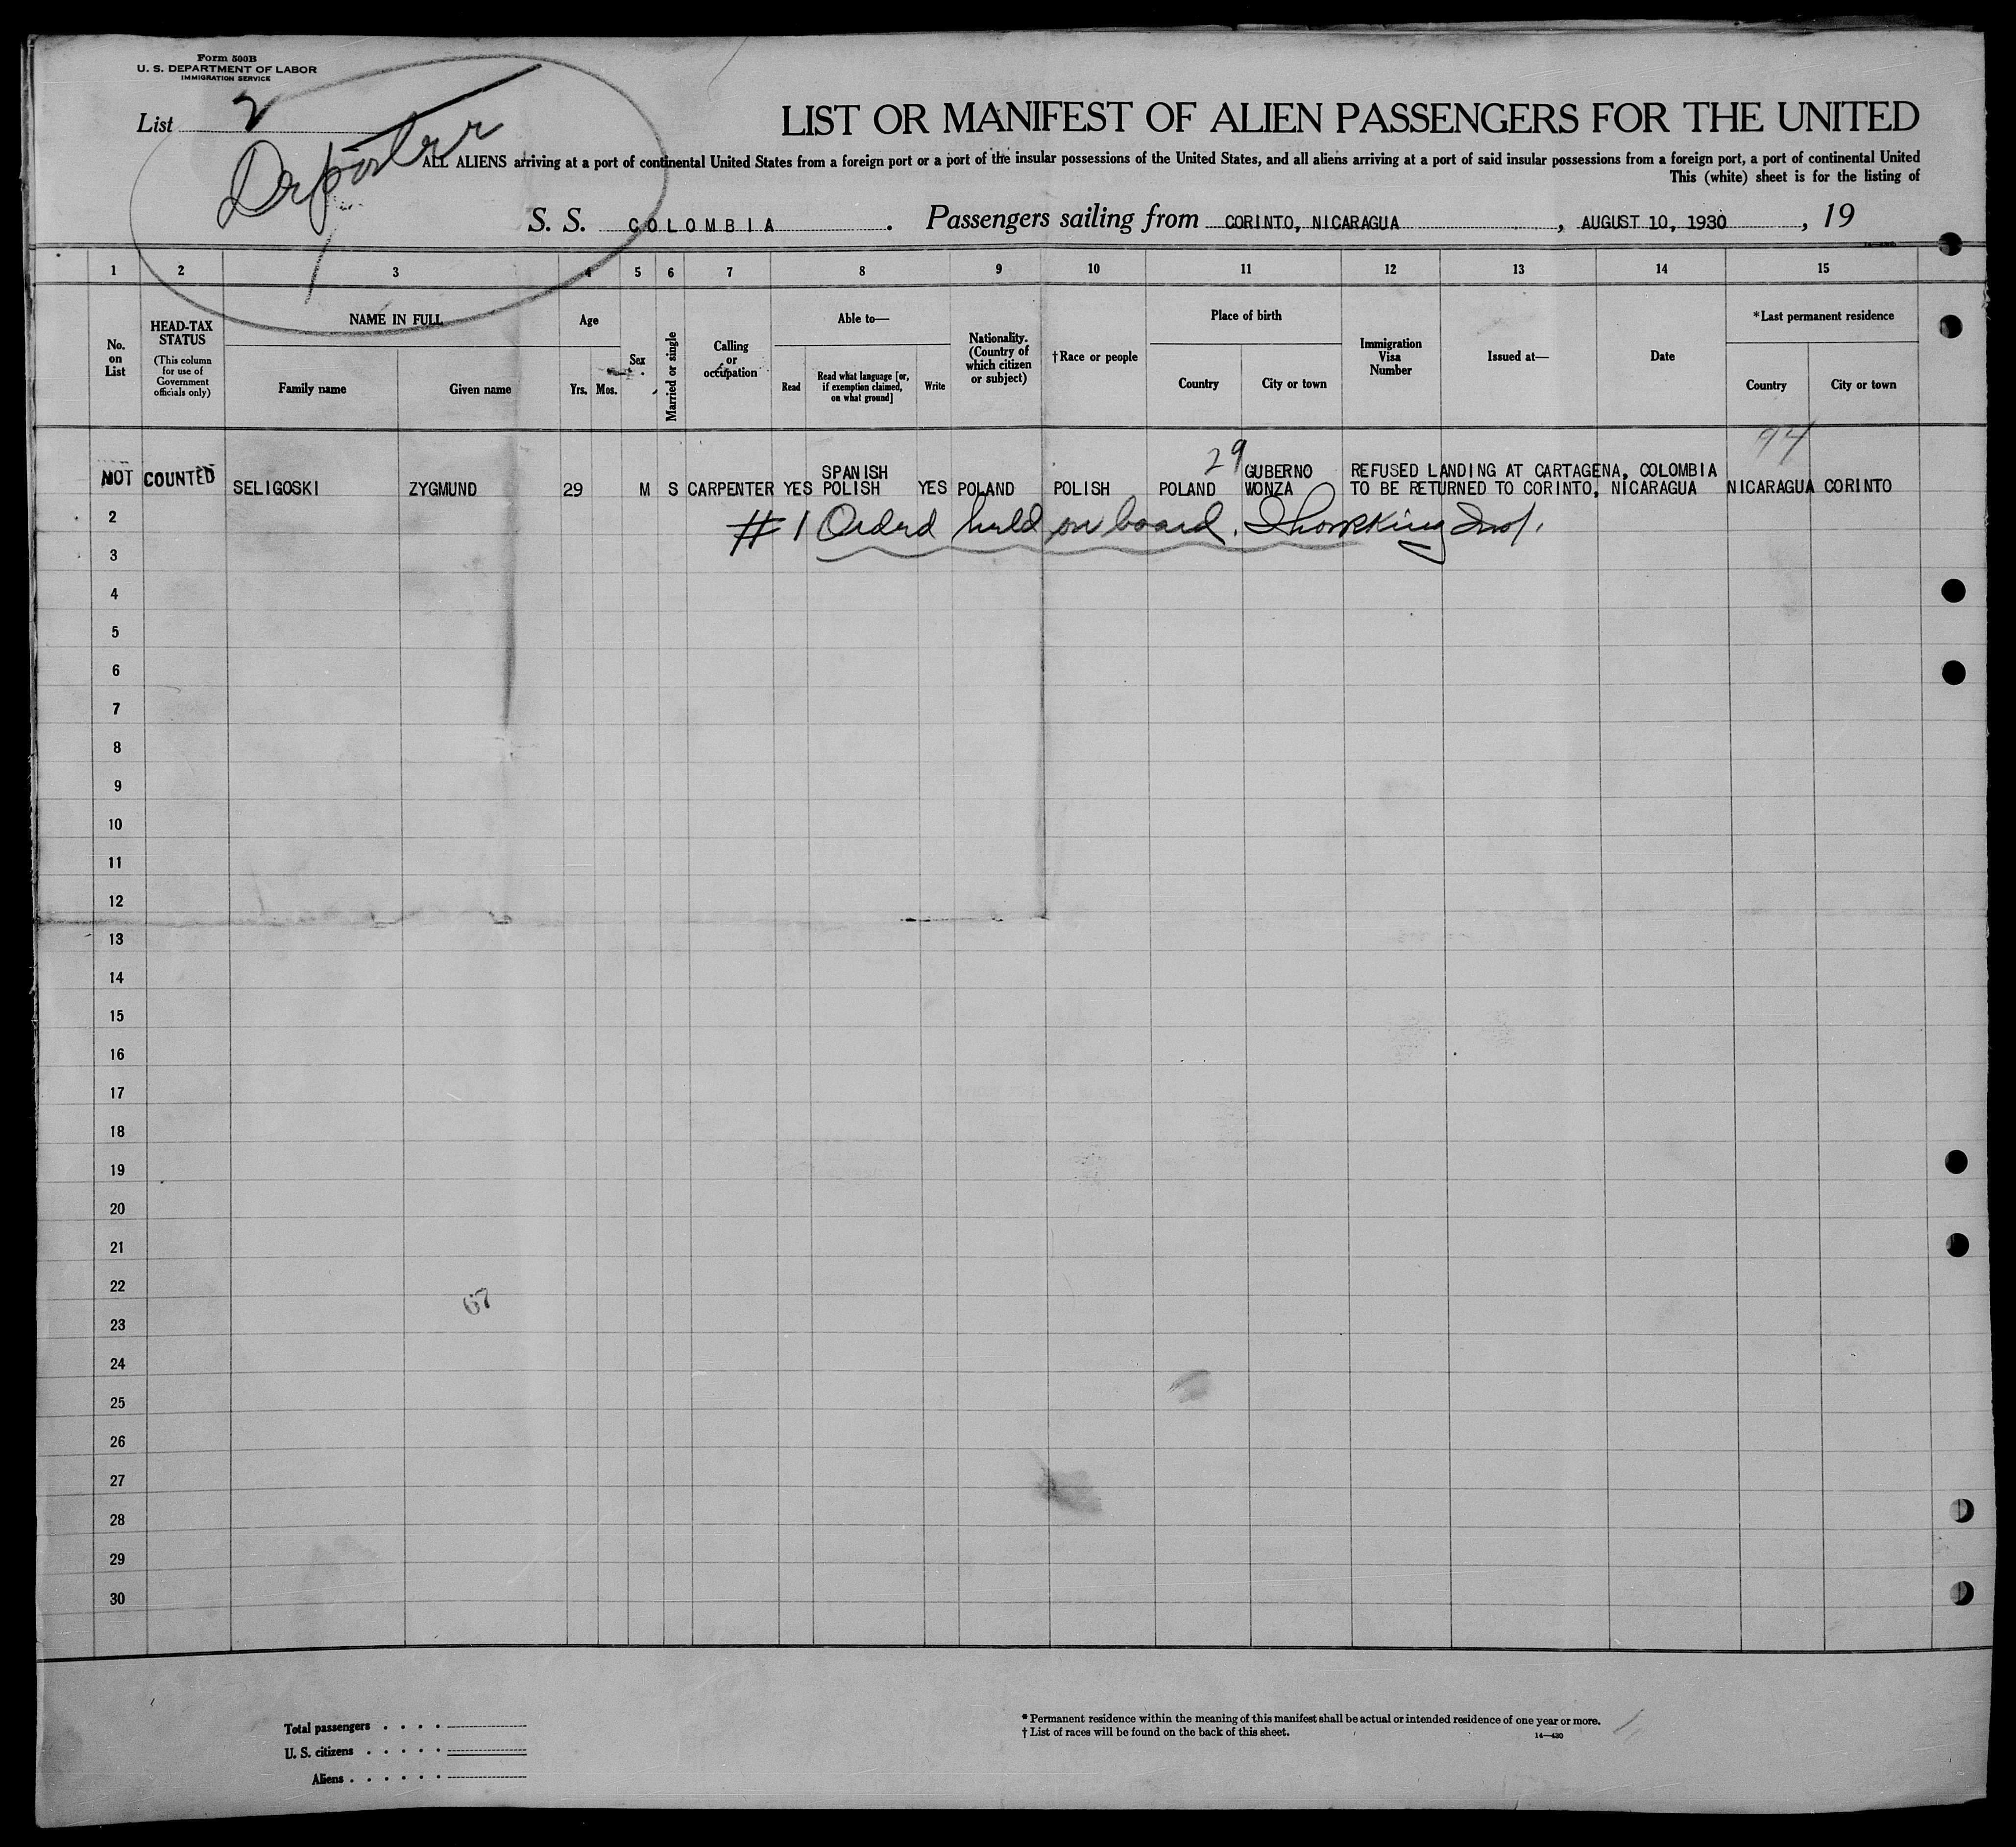 Form 500B
U. S. DEPARTMENT OF LABOR
IMMIGRATION SERVICE
List 2
LIST OR MANIFEST OF ALIEN PASSENGERS FOR THE UNITED
ALL ALIENS arriving at a port of continental United States from a foreign port or a port of the insular possessions of the United States, and all aliens arriving at a port of said insular possessions from a foreign port, a port of continental United
This (white) sheet is for the listing of
S. S. COLOMBIA. Passengers sailing from CORINTO, NICARAGUA, AUGUST 10, 1930, 19
1 2 3 4 5 6 7 8 9 10 11 12 13 14 15
No. on List
HEAD-TAX STATUS
(This column for use of Government officials only)
NAME IN FULL
Family name
Given name
Age
Yrs. Mos.
Sex
Married or single
Calling or occupation
Able to—
Read
Read what language [or, if exemption claimed, on what ground]
Write
Nationality. (Country of which citizen or subject)
†Race or people
Place of birth
Country
City or town
Immigration Visa Number
Issued at—
Date
*Last permanent residence
Country
City or town
94
29
SPANISH GUBERNO REFUSED LANDING AT CARTAGENA, COLOMBIA
NOT COUNTED SELIGOSKI ZYGMUND 29 M S CARPENTER YES POLISH YES POLAND POLISH POLAND WONZA TO BE RETURNED TO CORINTO, NICARAGUA NICARAGUA CORINTO
2 #1 Ordrd held on board.
3
4
5
6
7
8
9
10
11
12
13
14
15
16
17
18
19
20
21
22
67
23
24
25
26
27
28
29
30
Total passengers
U. S. citizens
Aliens
* Permanent residence within the meaning of this manifest shall be actual or intended residence of one year or more.
† List of races will be found on the back of this sheet.
14—430